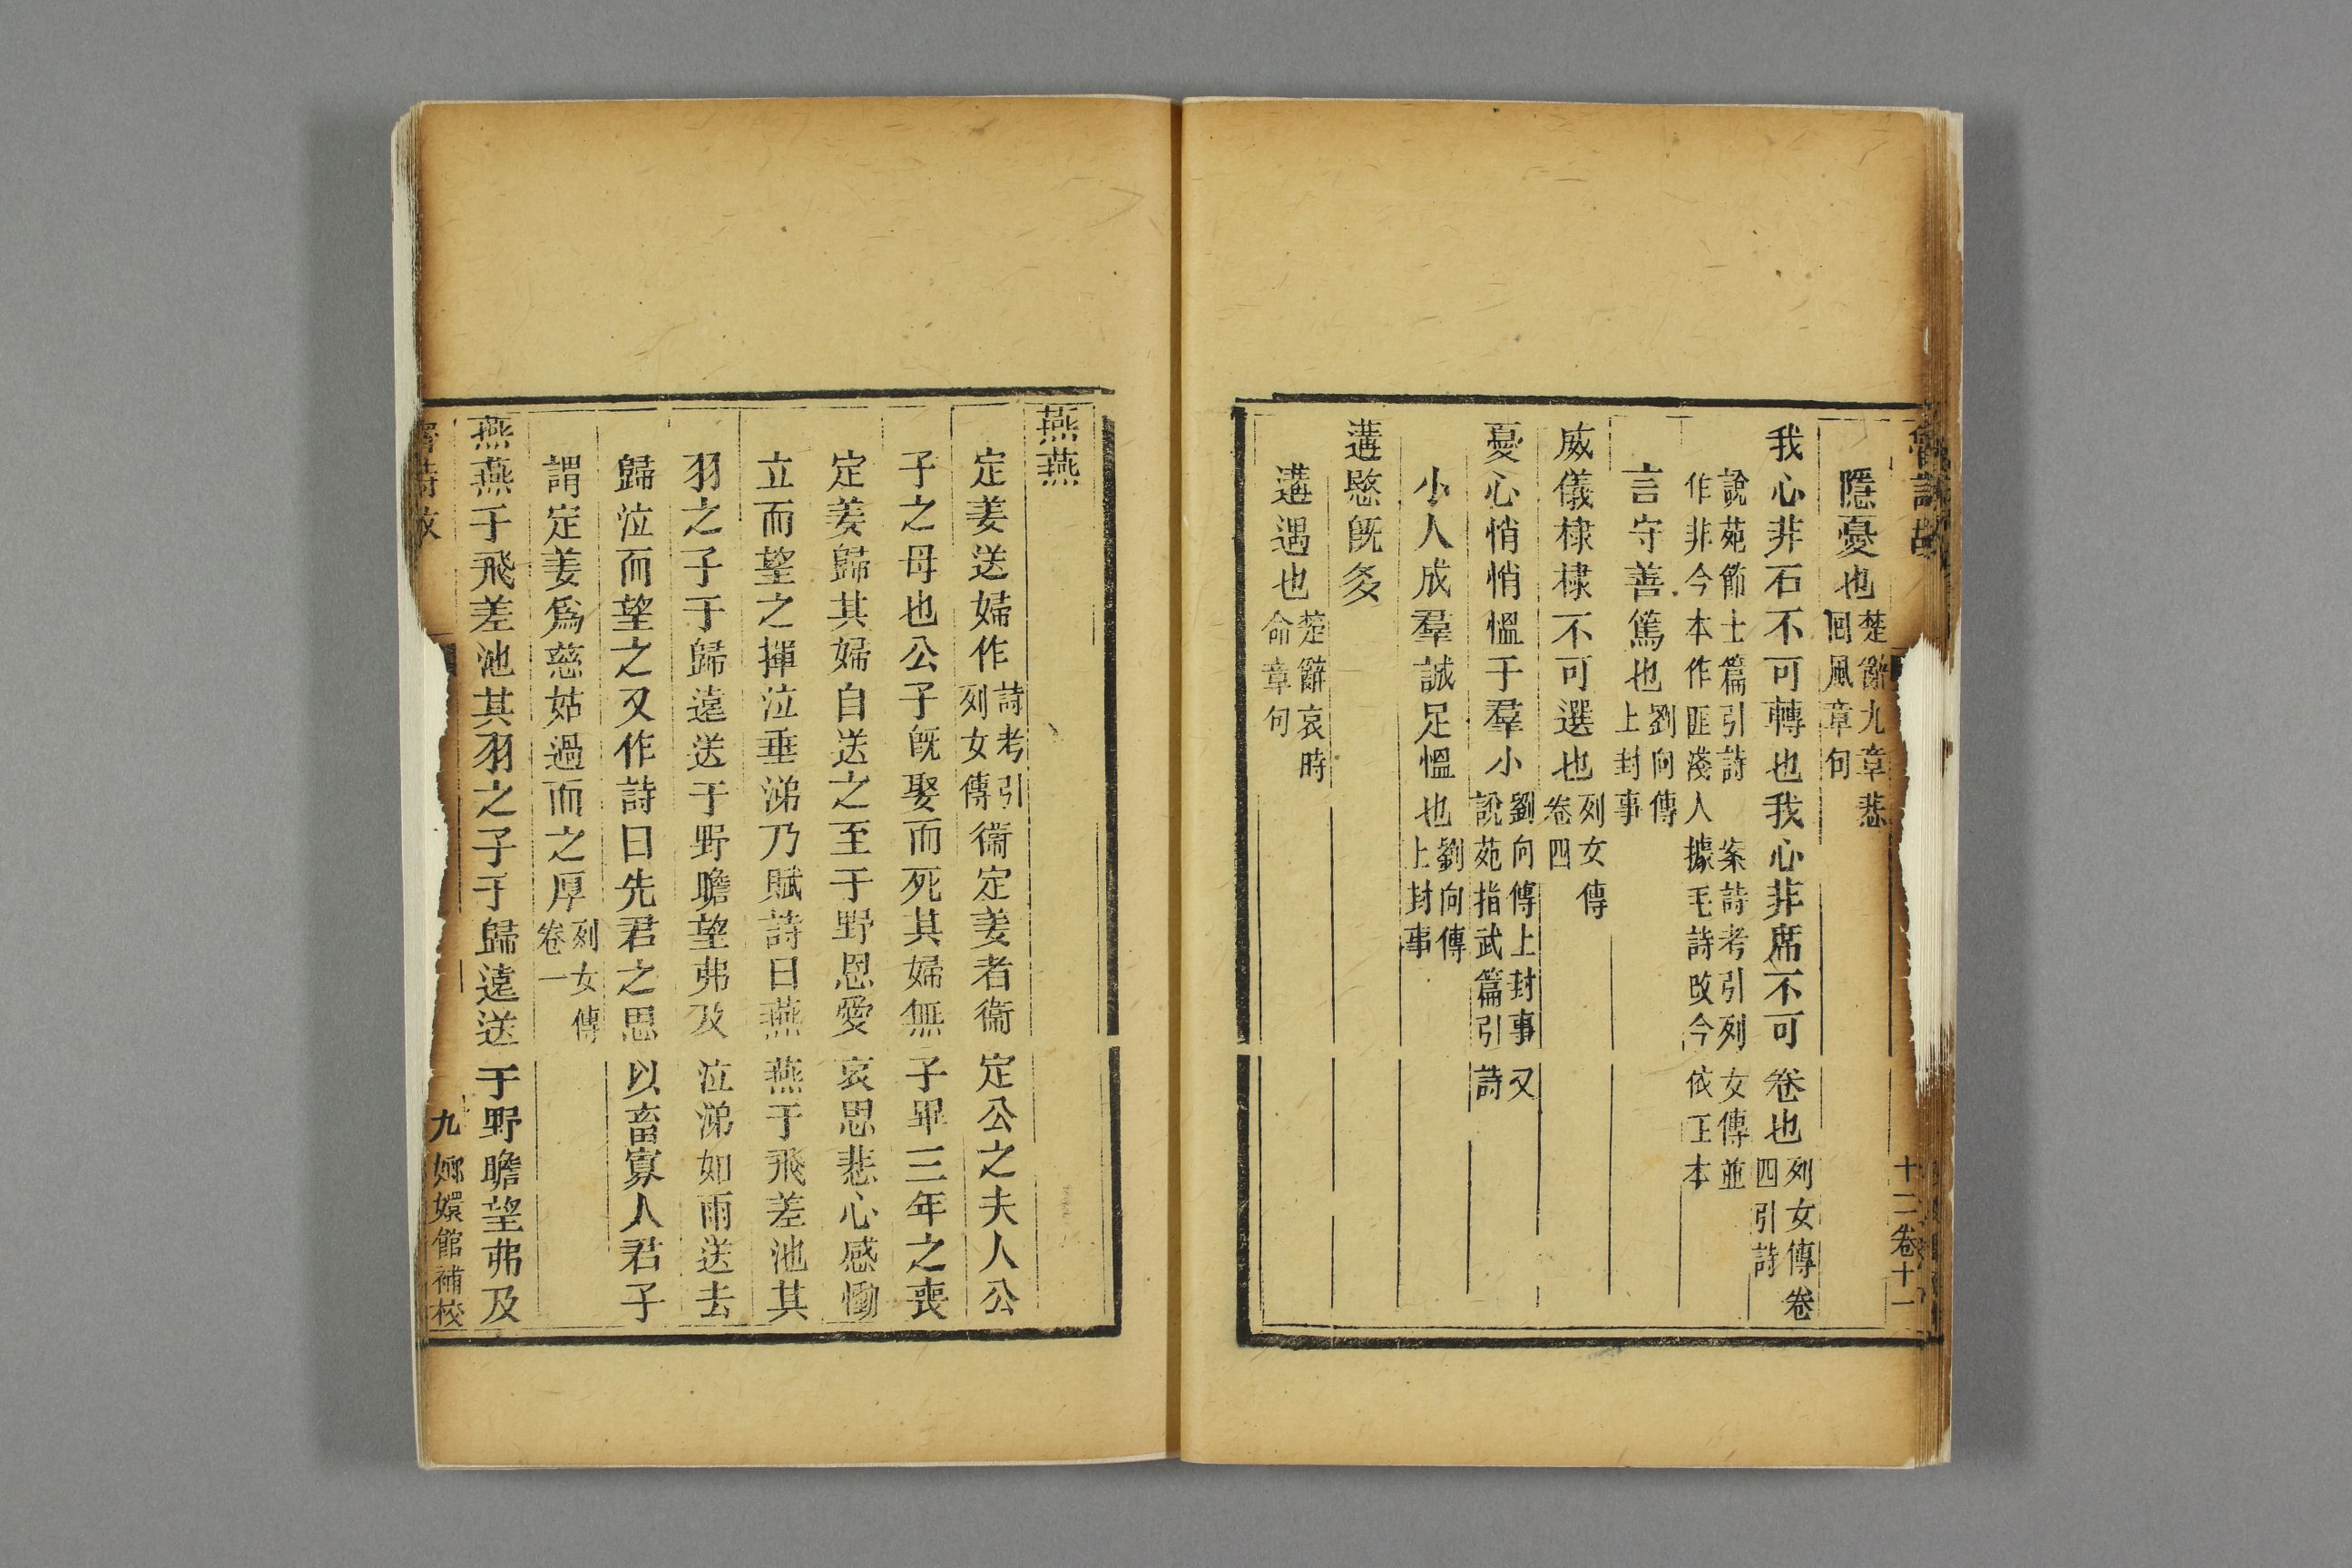 隱憂也楚辭九章悲回風章句
我心非石不可轉也我心非席不可卷也列女傳卷四引詩
說苑節士篇引詩 案詩考引列女傳並作非今本作匪淺人據毛詩改今依正本
言守善篤也劉向傳上封事
威儀棣棣不可選也列女傳卷四
憂心悄悄慍于羣小劉向傳上封事又說苑指武篇引詩
小人成羣誠足慍也劉向傳上封事
遘愍旣多
遘遇也楚辭哀時命章句
十二卷十一
燕燕
定姜送婦作詩考引列女傳衞定姜者衞定公之夫人公
子之母也公子旣娶而死其婦無子畢三年之喪
定姜歸其婦自送之至于野恩愛哀思悲心感慟
立而望之揮泣垂涕乃賦詩曰燕燕于飛差池其
羽之子于歸遠送于野瞻望弗及泣涕如雨送去
歸泣而望之又作詩曰先君之思以畜寡人君子
謂定姜爲慈姑過而之厚列女傳卷一
燕燕于飛差池其羽之子于歸遠送于野瞻望弗及
九 嫏嬛館補校